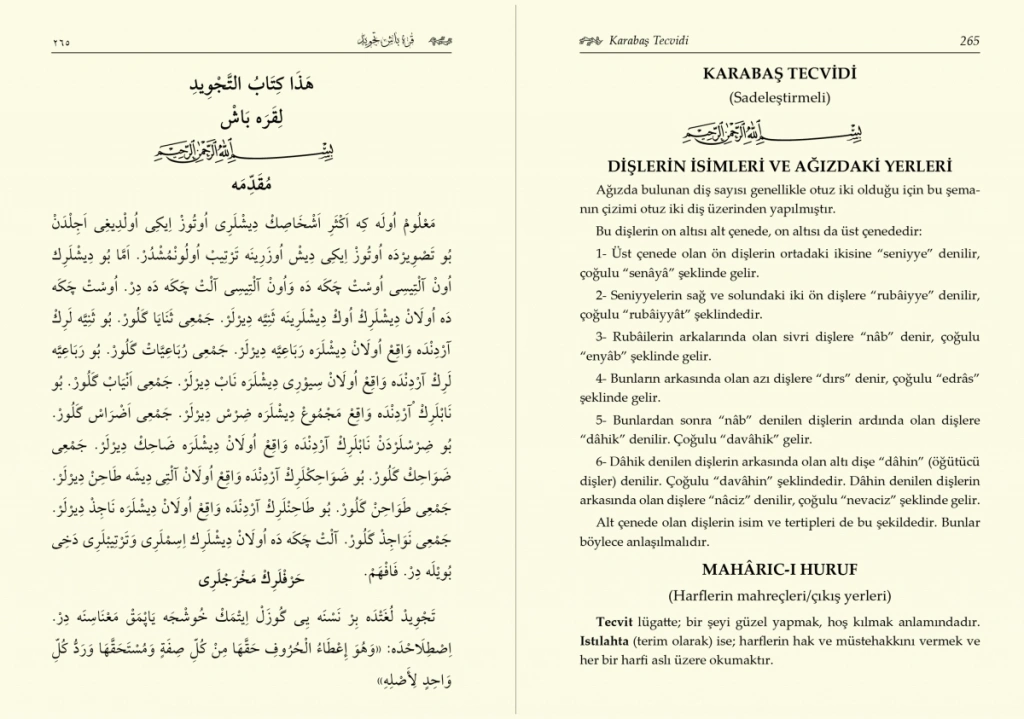 ٢٦٥
قره باش تجويد
هَذَا كِتَابُ التَّجْوِيدِ
لِقَرَه بَاشْ
بِسْمِ اللّٰهِ الرَّحْمٰنِ الرَّحِيمِ
مُقَدِّمَه
مَعْلُومْ اُولَه كِه اَكْثَرِ اَشْخَاصِكْ دِيشْلَرِى اُوتُوزْ اِيكِى اُولْدِيغِى اَجِلْدَنْ
بُو تَصْوِيرْدَه اُوتُوزْ اِيكِى دِيشْ اُوزَرِينَه تَرْتِيبْ اُولُونْمُشْدُرْ. اَمَّا بُو دِيشْلَرِكْ
اُونْ آلْتِيسِى اُوسْتْ چَكَه دَه وَاُونْ آلْتِيسِى آلْتْ چَكَه دَه دِرْ. اُوسْتْ چَكَه
دَه اُولَانْ دِيشْلَرِكْ اُوكْ دِيشْلَرِينَه ثَنِيَّه دِيرْلَرْ. جَمْعِى ثَنَايَا كَلُورْ. بُو ثَنِيَّه لَرِكْ
آرْدِنْدَه وَاقِعْ اُولَانْ دِيشْلَرَه رَبَاعِيَّه دِيرْلَرْ. جَمْعِى رُبَاعِيَّاتْ كَلُورْ. بُو رَبَاعِيَّه
لَرِكْ آرْدِنْدَه وَاقِعْ اُولَانْ سِيوْرِى دِيشْلَرَه نَابْ دِيرْلَرْ. جَمْعِى اَنْيَابْ كَلُورْ. بُو
نَابْلَرِكْ آرْدِنْدَه وَاقِعْ مَجْمُوعْ دِيشْلَرَه ضِرْسْ دِيرْلَرْ. جَمْعِى اَضْرَاسْ كَلُورْ.
بُو ضِرْسْلَرْدَنْ نَابْلَرِكْ آرْدِنْدَه وَاقِعْ اُولَانْ دِيشْلَرَه ضَاحِكْ دِيرْلَرْ. جَمْعِى
ضَوَاحِكْ كَلُورْ. بُو ضَوَاحِكْلَرِكْ آرْدِنْدَه وَاقِعْ اُولَانْ آلْتِى دِيشَه طَاحِنْ دِيرْلَرْ.
جَمْعِى طَوَاحِنْ كَلُورْ. بُو طَاحِنْلَرِكْ آرْدِنْدَه وَاقِعْ اُولَانْ دِيشْلَرَه نَاجِذْ دِيرْلَرْ.
جَمْعِى نَوَاجِذْ كَلُورْ. آلْتْ چَكَه دَه اُولَانْ دِيشْلَرِكْ اِسِمْلَرِى وَتَرْتِيبْلَرِى دَخِى
بُويْلَه دِرْ. فَافْهَمْ.
حَرْفْلَرِكْ مَخْرَجْلَرِى
تَجْوِيدْ لُغَتْدَه بِرْ نَسْنَه يِى كُوزَلْ اِيتْمَكْ خُوشْجَه يَاپْمَقْ مَعْنَاسِنَه دِرْ.
اِصْطِلَاحْدَه: «وَهُوَ إِعْطَاءُ الْحُرُوفِ حَقَّهَا مِنْ كُلِّ صِفَةٍ وَمُسْتَحَقَّهَا وَرَدُّ كُلِّ
وَاحِدٍ لِأَصْلِهِ»
Karabaş Tecvidi
265
KARABAŞ TECVİDİ
(Sadeleştirmeli)
بِسْمِ اللّٰهِ الرَّحْمٰنِ الرَّحِيمِ
DİŞLERİN İSİMLERİ VE AĞIZDAKİ YERLERİ
Ağızda bulunan diş sayısı genellikle otuz iki olduğu için bu şema-
nın çizimi otuz iki diş üzerinden yapılmıştır.
Bu dişlerin on altısı alt çenede, on altısı da üst çenededir:
1- Üst çenede olan ön dişlerin ortadaki ikisine “seniyye” denilir,
çoğulu “senâyâ” şeklinde gelir.
2- Seniyyelerin sağ ve solundaki iki ön dişlere “rubâiyye” denilir,
çoğulu “rubâiyyât” şeklindedir.
3- Rubâilerin arkalarında olan sivri dişlere “nâb” denir, çoğulu
“enyâb” şeklinde gelir.
4- Bunların arkasında olan azı dişlere “dırs” denir, çoğulu “edrâs”
şeklinde gelir.
5- Bunlardan sonra “nâb” denilen dişlerin ardında olan dişlere
“dâhik” denilir. Çoğulu “davâhik” gelir.
6- Dâhik denilen dişlerin arkasında olan altı dişe “dâhin” (öğütücü
dişler) denilir. Çoğulu “davâhin” şeklindedir. Dâhin denilen dişlerin
arkasında olan dişlere “nâciz” denilir, çoğulu “nevaciz” şeklinde gelir.
Alt çenede olan dişlerin isim ve tertipleri de bu şekildedir. Bunlar
böylece anlaşılmalıdır.
MAHÂRIC-I HURUF
(Harflerin mahreçleri/çıkış yerleri)
Tecvit lügatte; bir şeyi güzel yapmak, hoş kılmak anlamındadır.
Istılahta (terim olarak) ise; harflerin hak ve müstehakkını vermek ve
her bir harfi aslı üzere okumaktır.